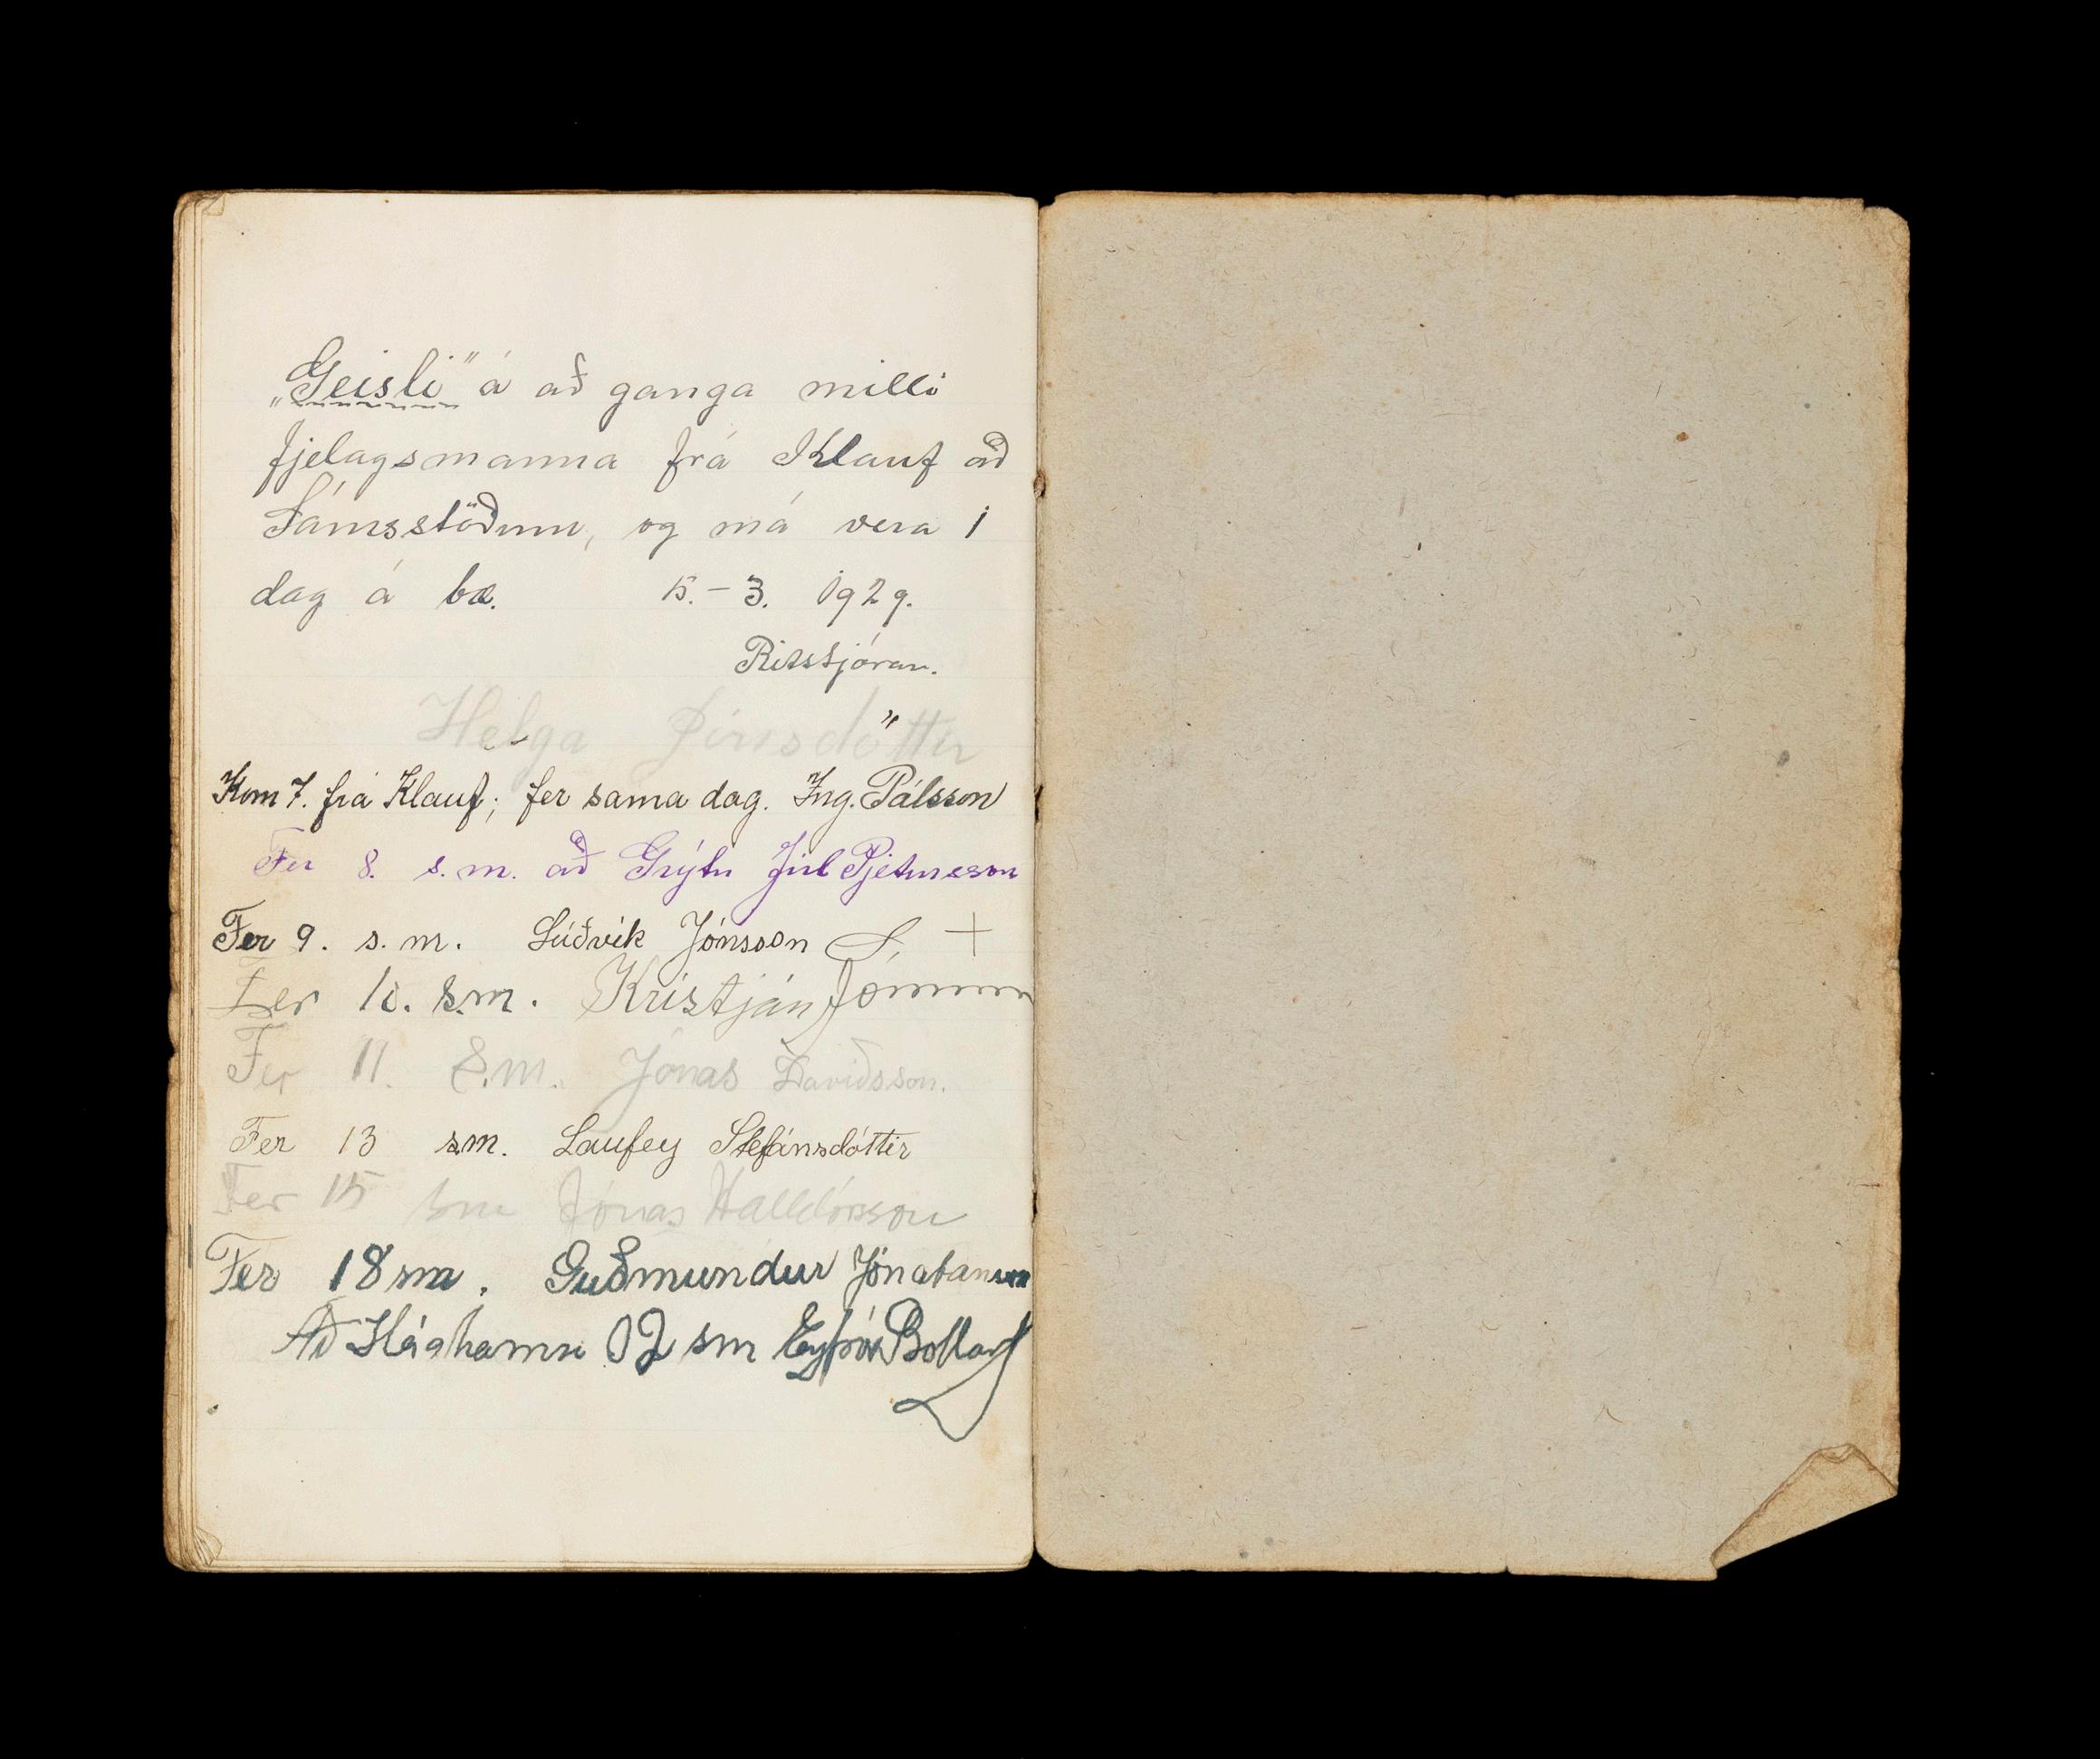 „Geisli" á að ganga milli
fjelagsmanna frá Klauf að
Sámsstöðum, og má vera 1
dag á bæ. 15.-3. 1929.
Ritstjóran.
Helga
Kom 7. frá Klauf; fer sama dag. Ing. Pálsson
Fer 8. s.m. að Grýtu Júl Pjetursson
Fer 9. s.m. Lúðvik Jónsson L. +
Fer 10. s.m. Kristján Jónsson
Fer 11. s.m. Jónas Davíðsson.
Fer 13 s.m. Laufey Stefánsdóttir
Fer 15 sm Jónas Halldórsson
Fer 18 sm. Guðmundur Jónatansson
Að sm